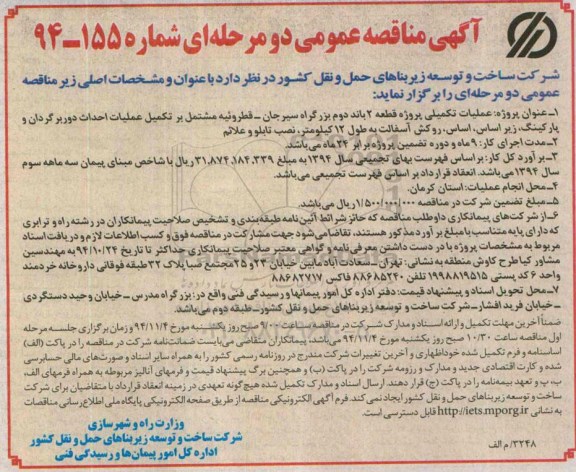 آگهی مناقصه عمومی دو مرحله‌ای شماره ۱۵۵-۹۴
شرکت ساخت و توسعه زیربناهای حمل و نقل کشور در نظر دارد با عنوان و مشخصات اصلی زیر مناقصه
عمومی دو مرحله‌ای را برگزار نماید:
۱- عنوان پروژه: عملیات تکمیلی پروژه قطعه ۲ باند دوم بزرگراه سیرجان - قطروئیه مشتمل بر تکمیل عملیات احداث دوربرگردان و
پارکینگ، زیر اساس، اساس، روکش آسفالت به طول ۱۲ کیلومتر، نصب تابلو و علائم
۲- مدت اجرای کار: ۹ ماه و دوره تضمین پروژه برابر ۲۴ ماه می‌باشد.
۳- برآورد کل کار: بر اساس فهرست بهای تجمیعی سال ۱۳۹۴ به مبلغ ۳۱,۸۷۴,۱۸۴,۳۳۹ ریال با شاخص مبنای پیمان سه ماهه سوم
سال ۱۳۹۴ می‌باشد. انعقاد قرارداد بر اساس فهرست تجمیعی می‌باشد.
۴- محل انجام عملیات: استان کرمان.
۵- مبلغ تضمین شرکت در مناقصه ۱/۵۰۰/۰۰۰/۰۰۰ ریال می‌باشد.
۶- از شرکت‌های پیمانکاری داوطلب مناقصه که حائز شرائط آئین‌نامه طبقه‌بندی و تشخیص صلاحیت پیمانکاران در رشته راه و ترابری
که دارای پایه متناسب با مبلغ برآورد مذکور هستند، تقاضا می‌شود جهت مشارکت در مناقصه فوق و کسب اطلاعات لازم و دریافت اسناد
مربوط به مشخصات پروژه با در دست داشتن معرفی‌نامه و گواهی معتبر صلاحیت پیمانکاری حداکثر تا تاریخ ۹۴/۱۰/۲۴ به مهندسین
مشاور کیا طرح کاوش منطقه به نشانی: تهران - سعادت آباد مابین خیابان ۲۳ و ۲۵ مجتمع صبا پلاک ۳۲ طبقه فوقانی داروخانه خردمند
واحد ۶ کد پستی ۱۹۹۸۸۱۹۵۱۵ تلفن ۸۸۶۸۵۲۴۰ فاکس ۸۸۶۸۲۷۱۷
۷- محل تحویل اسناد و پیشنهاد قیمت: دفتر اداره کل امور پیمانها و رسیدگی فنی واقع در: بزرگراه مدرس - خیابان وحید دستگردی
- خیابان فرید افشار - شرکت ساخت و توسعه زیربناهای حمل و نقل کشور - طبقه دوم می‌باشد.
ضمناً آخرین مهلت تکمیل و ارائه اسناد و مدارک شرکت در مناقصه تا ساعت ۹/۰۰ صبح روز یکشنبه مورخ ۹۴/۱۱/۴ و زمان برگزاری جلسه مرحله
اول مناقصه ساعت ۱۰/۳۰ صبح روز یکشنبه مورخ ۹۴/۱۱/۴ می‌باشد، پیمانکاران متقاضی می‌بایست ضمانت‌نامه شرکت در مناقصه را در پاکت (الف)
اساسنامه و فرم تکمیل شده خوداظهاری و آخرین تغییرات شرکت مندرج در روزنامه رسمی کشور را به همراه سایر اسناد و صورت‌های مالی حسابرسی
شده و کارت اقتصادی جدید و مدارک و رزومه شرکت را در پاکت (ب) و همچنین برگ پیشنهاد قیمت و فرمهای آنالیز مربوطه به همراه فرمهای الف،
ب، پ و تعهد بیمه‌نامه را در پاکت (ج) قرار دهند. ارسال اسناد و مدارک تکمیل شده هیچ‌گونه تعهدی در زمینه انعقاد قرارداد با متقاضیان برای شرکت
ساخت و توسعه زیربناهای حمل و نقل کشور ایجاد نمی‌کند. فرم آگهی الکترونیکی مناقصه از طریق صفحه الکترونیکی پایگاه ملی اطلاع‌رسانی مناقصات
به نشانی http://iets.mporg.ir قابل دسترسی است.
وزارت راه و شهرسازی
شرکت ساخت و توسعه زیربناهای حمل و نقل کشور
اداره کل امور پیمان‌ها و رسیدگی فنی
۳۲۴۸/ م الف